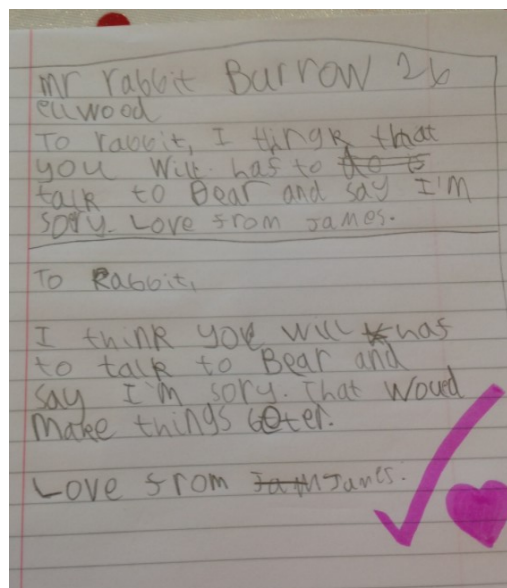 mr rabbit Burrow 26
ellwood
To rabbit, I thingk that
you Will has to do is
talk to Bear and say I'm
sory. Love from James.
To Rabbit,
I think you will has
to talk to Bear and
say I'm sory. That woued
make things beter.
Love from Jam James.